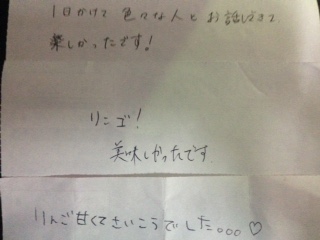 1日かけて 色々な人と お話しできて
楽しかったです!
りんご!
美味しかったです
りんご甘くてさいこうでした。。。♡